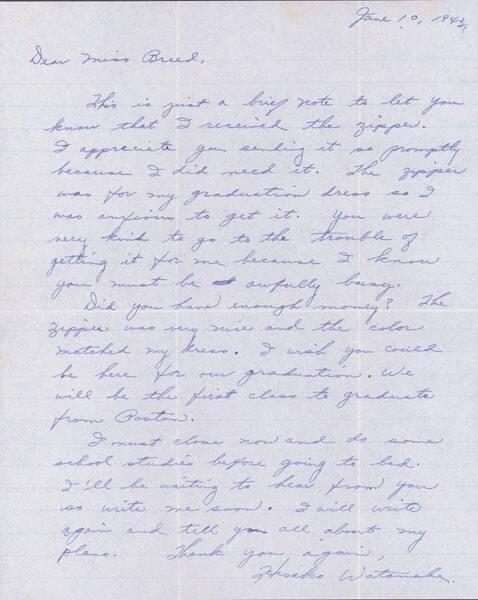 June 10, 1943.
Dear Miss Breed,
This is just a brief note to let you
know that I received the zipper.
I appreciate you sending it so promptly
because I did need it. The zipper
was for my graduation dress so I
was anxious to get it. You were
very kind to go to the trouble of
getting it for me because I know
you must be awfully busy.
Did you have enough money? The
zipper was very nice and the color
matched my dress. I wish you could
be here for our graduation. We
will be the first class to graduate
from Poston.
I must close now and do some
school studies before going to bed.
I'll be waiting to hear from you
so write me soon. I will write
again and tell you all about my
plans. Thank you again,
Hisako Watanabe.